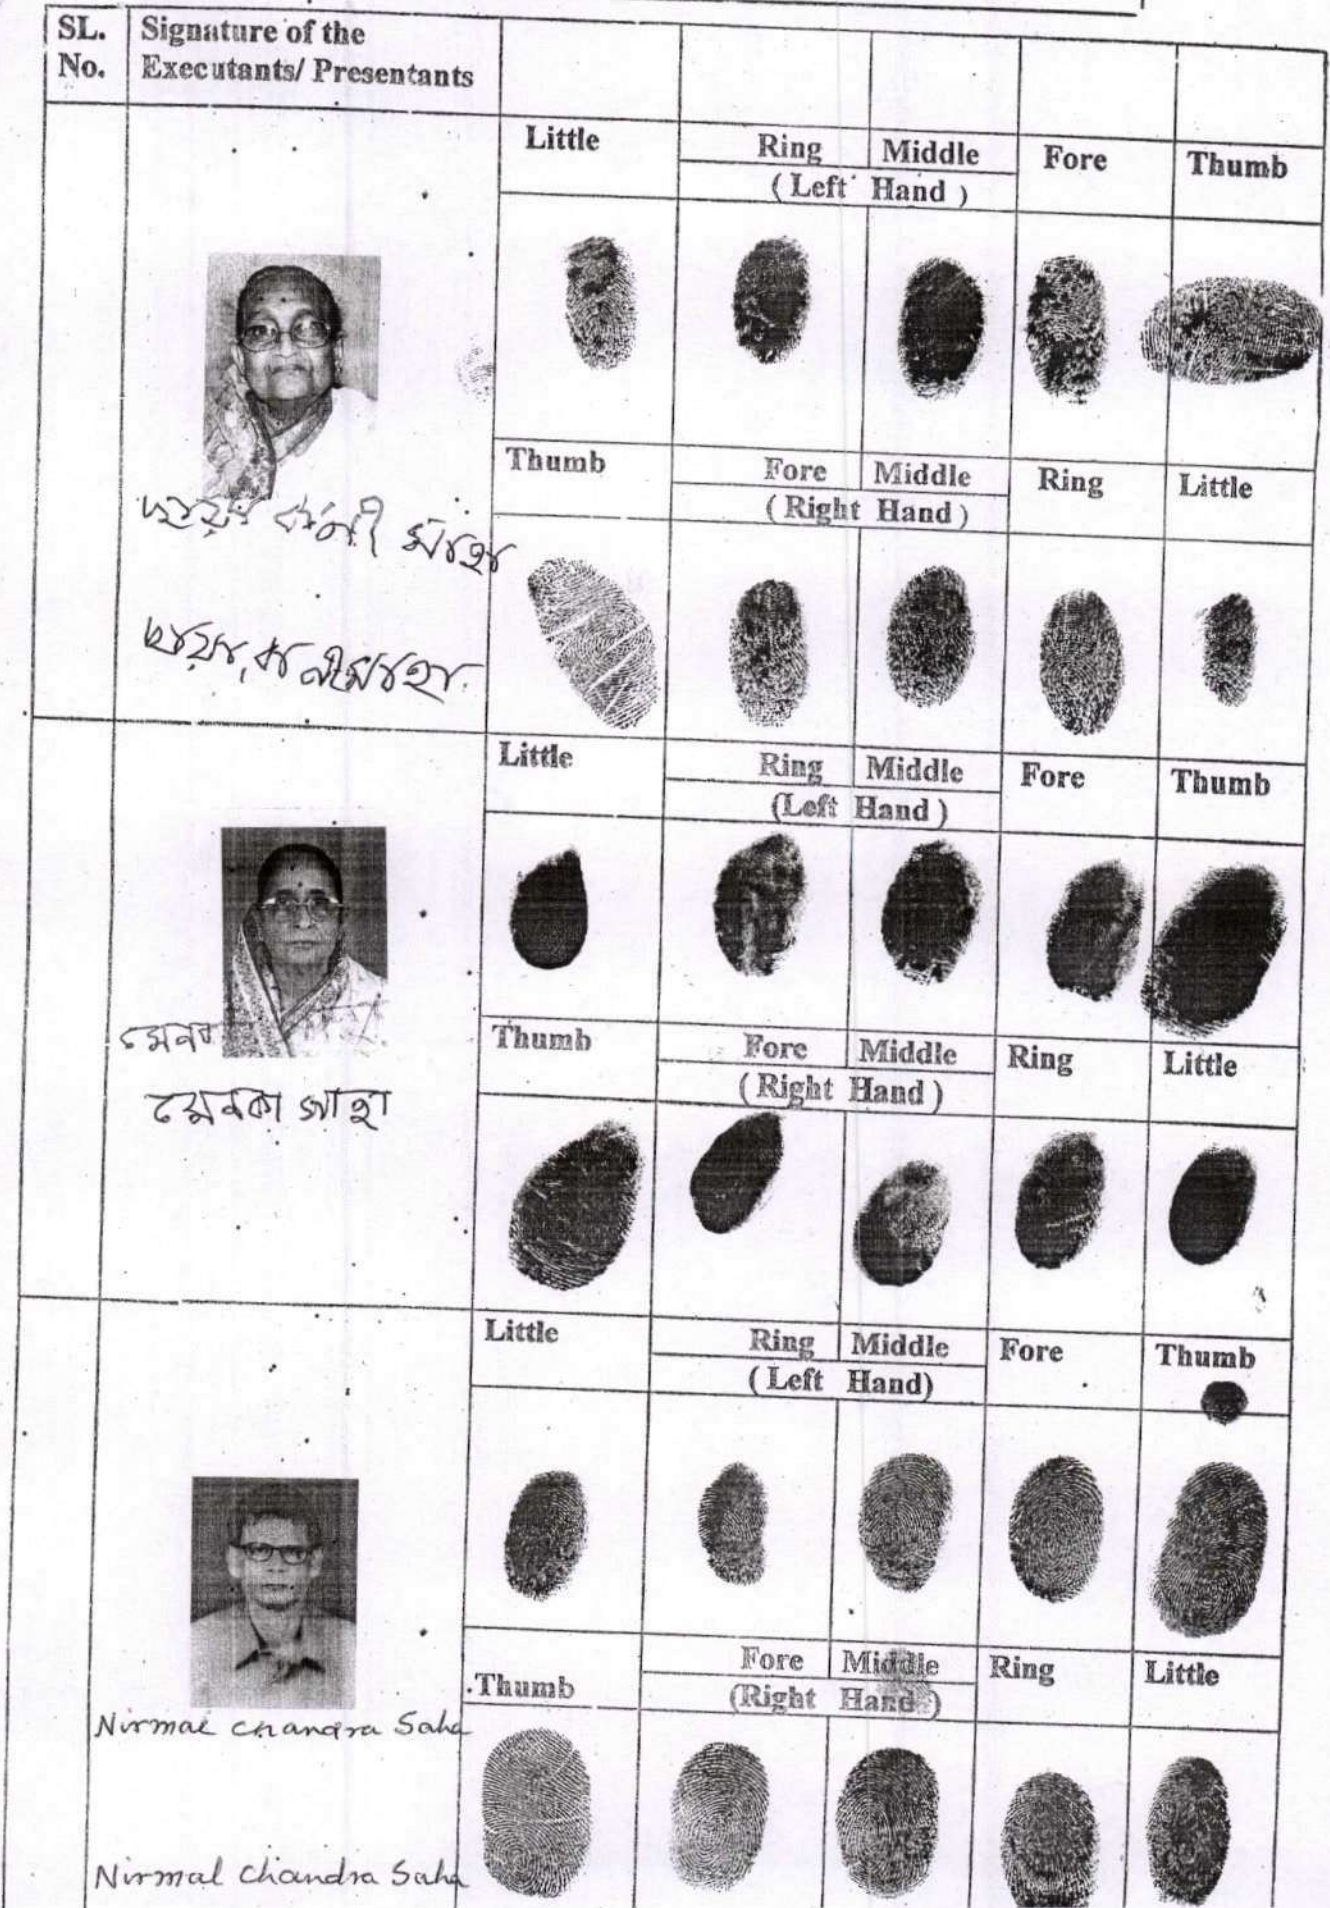 SL. No. Signature of the Executants/ Presentants
Little Ring Middle Fore Thumb
( Left Hand )
Thumb Fore Middle Ring Little
( Right Hand )
সাহা
Little Ring Middle Fore Thumb
(Left Hand )
মেনকা
Thumb Fore Middle Ring Little
( Right Hand )
মেনকা সাহা
Little Ring Middle Fore Thumb
( Left Hand)
Thumb Fore Middle Ring Little
(Right Hand )
Nirmal Chandra Saha
Nirmal Chandra Saha